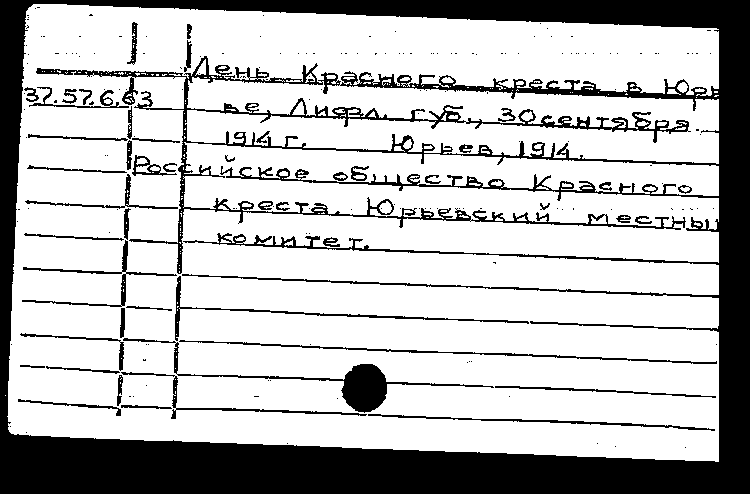 День Красного креста в Юрь
37.57.6.63 ве, Лифл. губ., 30 сентября
1914 г. Юрьев, 1914.
Российское общество Красного
креста. Юрьевский местны
комитет.